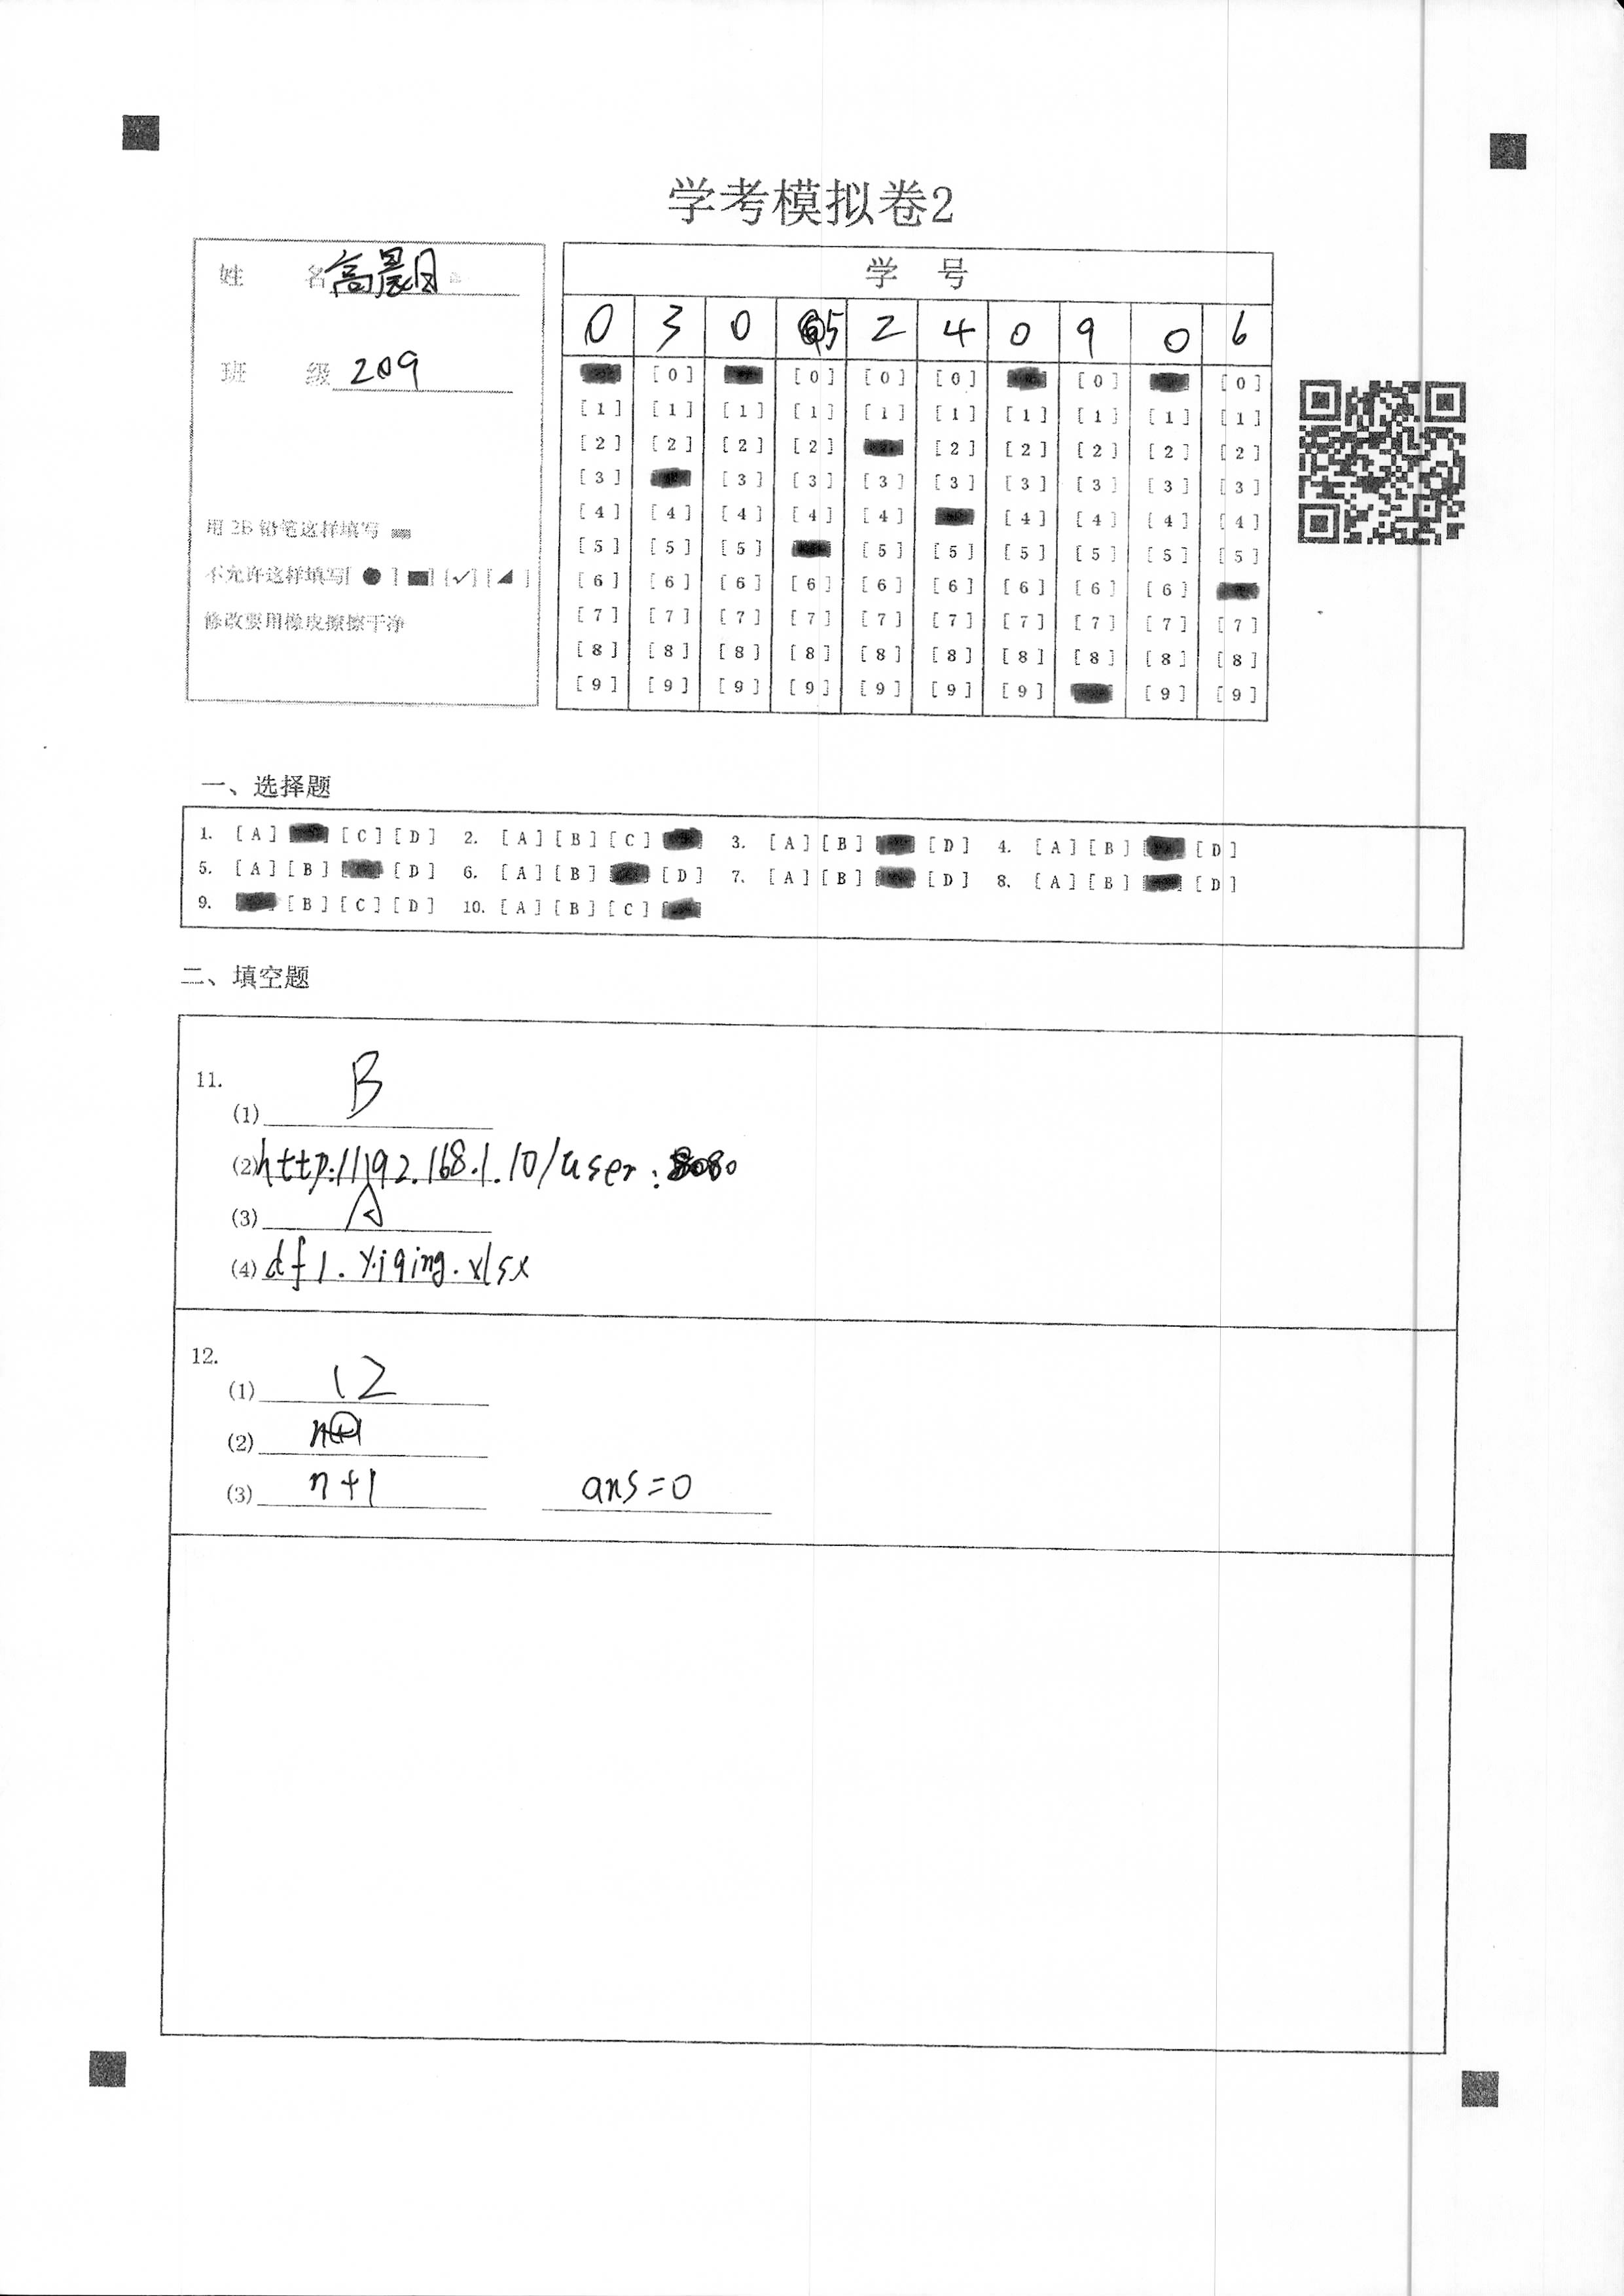 学考模拟卷2
姓 名 高晨月
班 级 209
用 2B 铅笔这样填写
不允许这样填写[ ● ] [■] [✓] [◢ ]
修改要用橡皮擦擦干净
学 号
0 3 0 5 2 4 0 9 0 6
[0] [0] [0] [0] [0] [0]
[1] [1] [1] [1] [1] [1] [1] [1] [1] [1]
[2] [2] [2] [2] [2] [2] [2] [2] [2]
[3] [3] [3] [3] [3] [3] [3] [3] [3]
[4] [4] [4] [4] [4] [4] [4] [4] [4]
[5] [5] [5] [5] [5] [5] [5] [5] [5]
[6] [6] [6] [6] [6] [6] [6] [6] [6]
[7] [7] [7] [7] [7] [7] [7] [7] [7] [7]
[8] [8] [8] [8] [8] [8] [8] [8] [8] [8]
[9] [9] [9] [9] [9] [9] [9] [9] [9]
一、选择题
1. [A] [C] [D] 2. [A] [B] [C] 3. [A] [B] [D] 4. [A] [B] [D]
5. [A] [B] [D] 6. [A] [B] [D] 7. [A] [B] [D] 8. [A] [B] [D]
9. [B] [C] [D] 10. [A] [B] [C]
二、填空题
11.
(1) B
(2) http://192.168.1.10/user:8080
(3) A
(4) df1.yiqing.xlsx
12.
(1) 12
(2) n+1
(3) n+1 ans=0